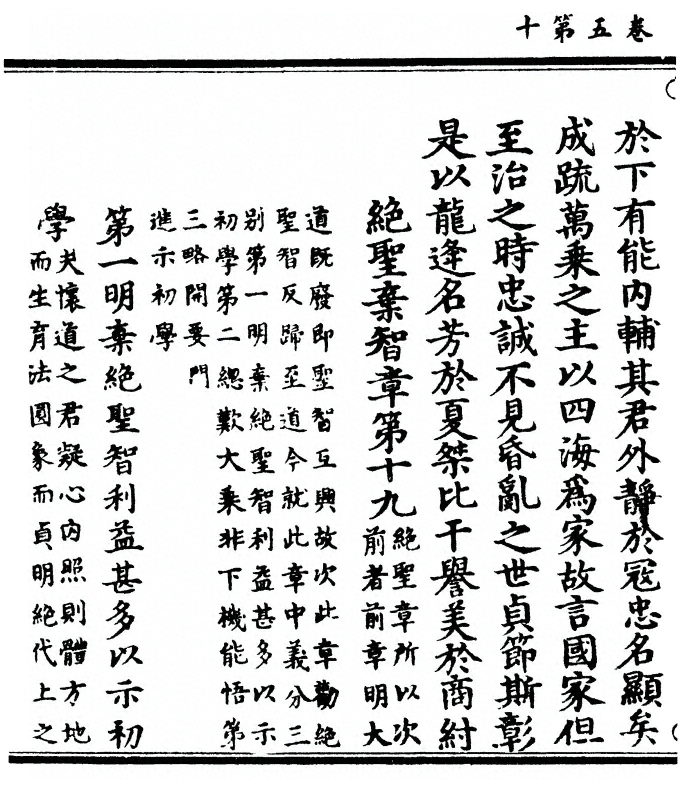 卷五第十
於下有能內輔其君外靜於冦忠名顯矣
成䟽萬乗之主以四海為家故言國家但
至治之時忠誠不見昏亂之世貞節斯彰
是以龍逄名芳於夏桀比干譽美於商紂
絕聖棄智章第十九
絕聖章所以次
前者前章明大
道旣廢即聖智互興故次此章勸絕
聖智反歸至道今就此章中義分三
别第一明棄絕聖智利益甚多以示
初學第二總歎大乗非下機能悟第
三略開要門
進示初學
第一明棄絕聖智利益甚多以示初
學
夫懷道之君凝心內照則體方地
而生育法圓象而貞明絕代上之